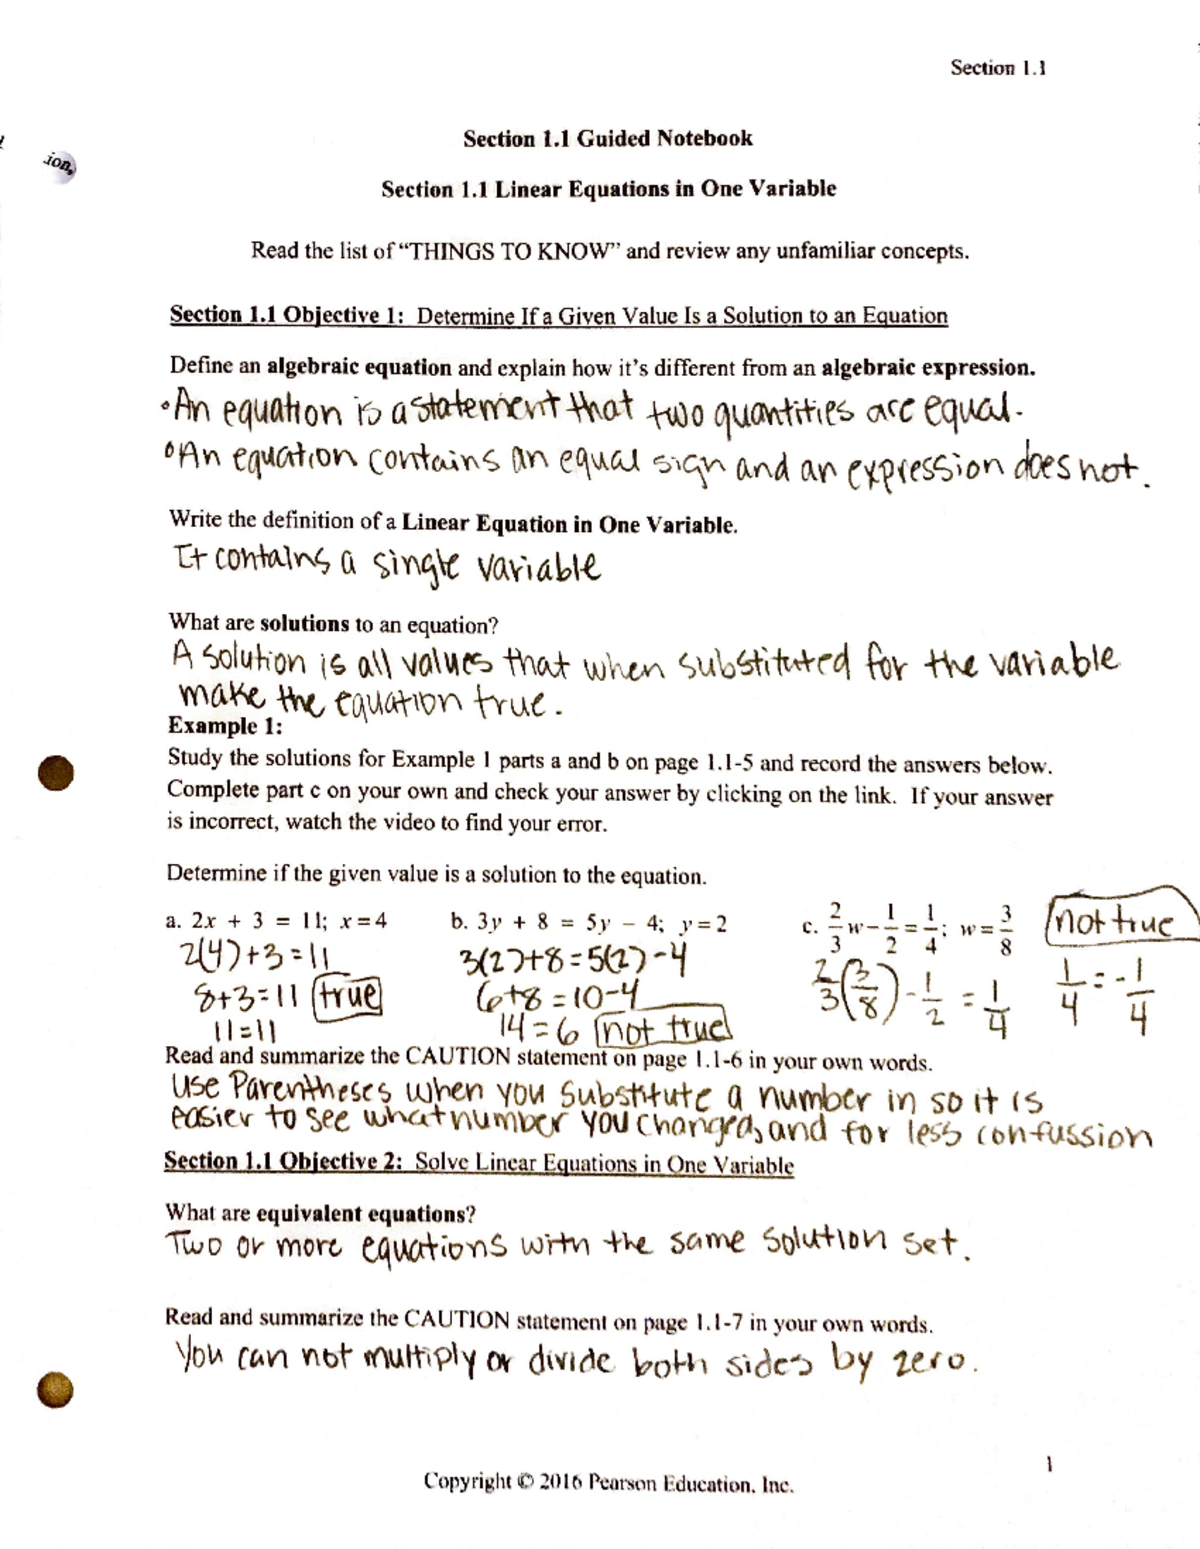 Section 1.1
ion,
Section 1.1 Guided Notebook
Section 1.1 Linear Equations in One Variable
Read the list of “THINGS TO KNOW” and review any unfamiliar concepts.
Section 1.1 Objective 1: Determine If a Given Value Is a Solution to an Equation
Define an algebraic equation and explain how it’s different from an algebraic expression.
•An equation is a statement that two quantities are equal.
•An equation contains an equal sign and an expression does not.
Write the definition of a Linear Equation in One Variable.
It contains a single variable
What are solutions to an equation?
A solution is all values that when substituted for the variable
make the equation true.
Example 1:
Study the solutions for Example 1 parts a and b on page 1.1-5 and record the answers below.
Complete part c on your own and check your answer by clicking on the link. If your answer
is incorrect, watch the video to find your error.
Determine if the given value is a solution to the equation.
a. 2x + 3 = 11; x = 4
2(4)+3=11
8+3=11 true
11=11
b. 3y + 8 = 5y − 4; y = 2
3(2)+8=5(2)-4
6+8=10-4
14=6 not true
c. 2/3 w − 1/2 = 1/4; w = 3/8
2/3(3/8) - 1/2 = 1/4
not true
1/4 = -1/4
Read and summarize the CAUTION statement on page 1.1-6 in your own words.
Use Parentheses when you substitute a number in so it is
easier to see what number you changed, and for less confussion
Section 1.1 Objective 2: Solve Linear Equations in One Variable
What are equivalent equations?
Two or more equations with the same solution set.
Read and summarize the CAUTION statement on page 1.1-7 in your own words.
You can not multiply or divide both sides by zero.
1
Copyright © 2016 Pearson Education, Inc.